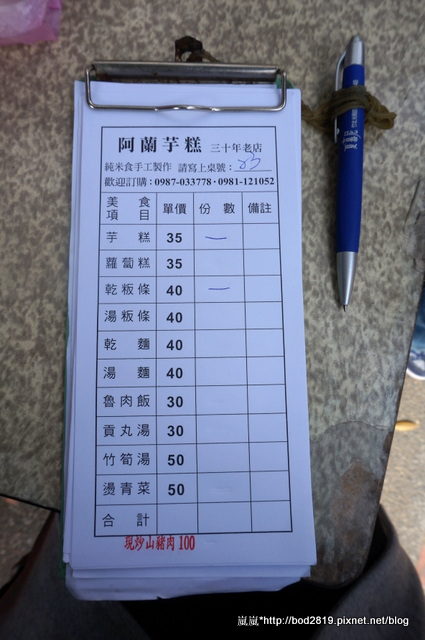 阿蘭芋糕 三十年老店
純米食手工製作 請寫上桌號：
歡迎訂購：0987-033778‧0981-121052
美食項目 單價 份數 備註
芋糕 35 一
蘿蔔糕 35
乾粄條 40 一
湯粄條 40
乾麵 40
湯麵 40
魯肉飯 30
貢丸湯 30
竹筍湯 50
燙青菜 50
合計
現炒山豬肉 100
嵐嵐*http://bod2819.pixnet.net/blog